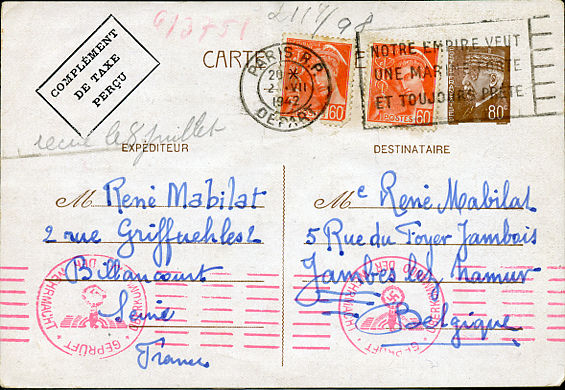 613751
2117/98
COMPLÉMENT
DE TAXE
PERÇU
CARTE
PARIS R.P.
20 *
2 VII
1942
DÉPART
60
POSTES 60
80c
NOTRE EMPIRE VEUT
UNE MARINE
ET TOUJOURS PRÊTE
reçue le 8 juillet
EXPÉDITEUR
M René Mabilat
2 rue Griffuehles 2
Billancourt
Seine
France
DESTINATAIRE
Me René Mabilat
5 Rue du Foyer Jambois
Jambes lez Namur
Belgique
OBERKOMMANDO DER WEHRMACHT
GEPRÜFT
OBERKOMMANDO DER WEHRMACHT
GEPRÜFT